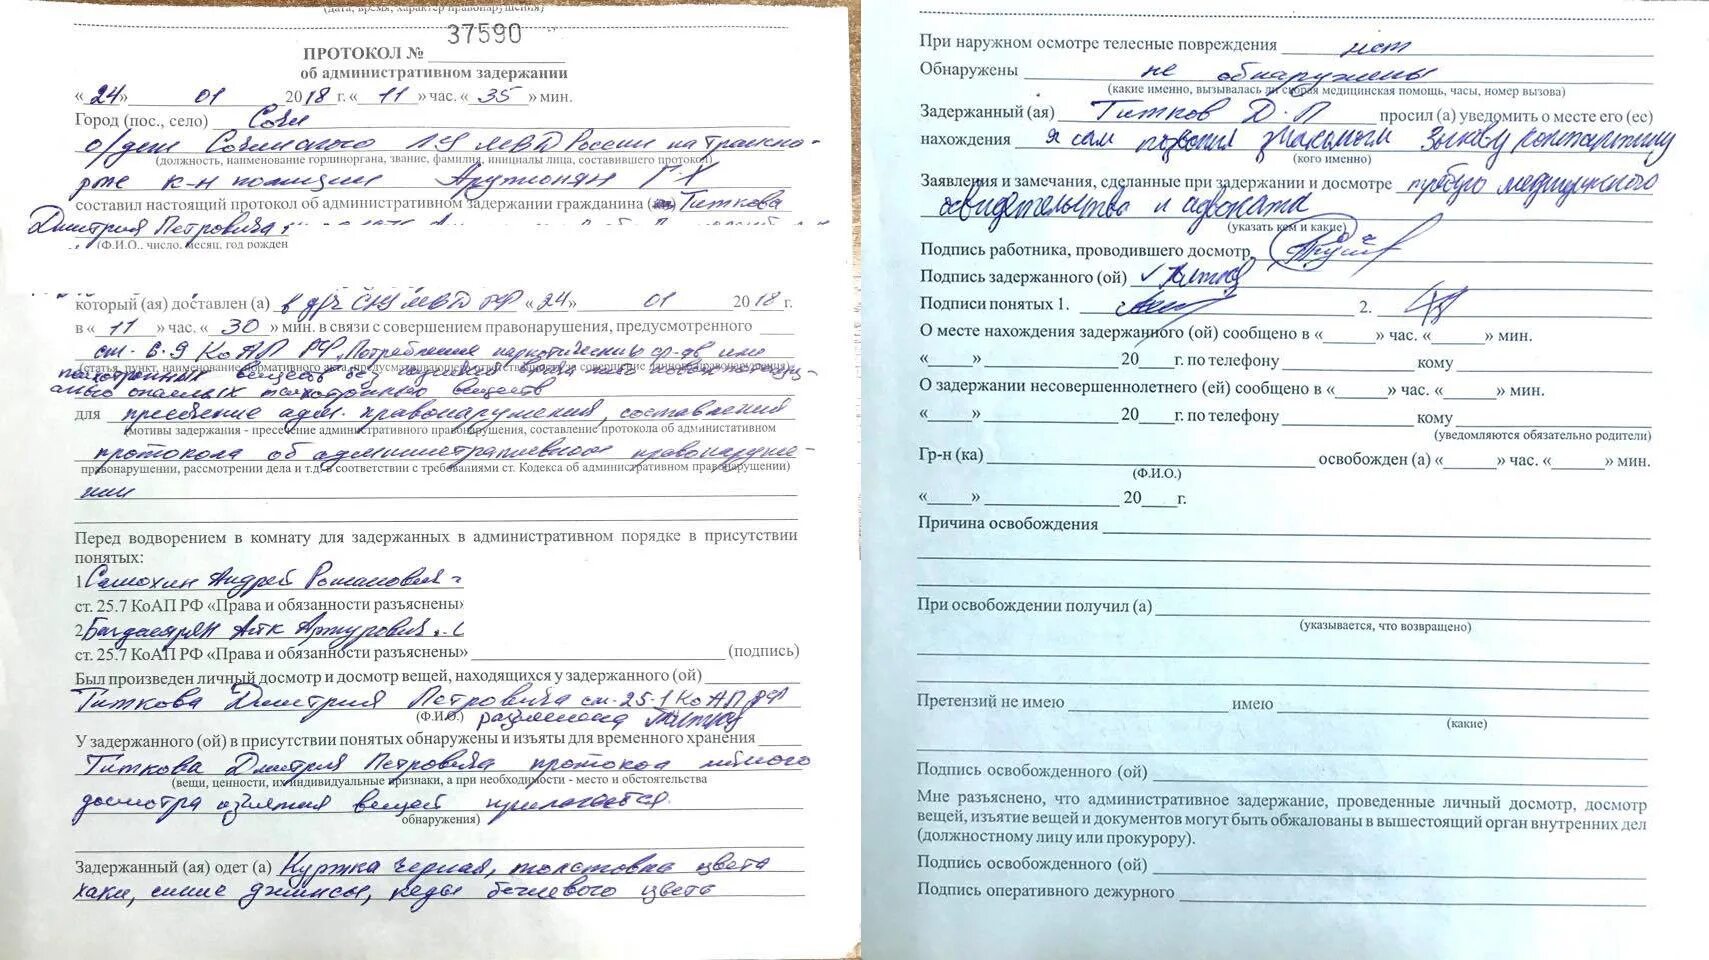 (дата, время, характер правонарушения)
37590
ПРОТОКОЛ №
об административном задержании
«24» 01 2018 г. « 11 » час. « 35 » мин.
Город (пос., село) Сочи
о/деж Сочинского ЛУ МВД России на транспо-
(должность, наименование горлиноргана, звание, фамилия, инициалы лица, составившего протокол)
рте к-н полиции Арутюнян Г.Х
составил настоящий протокол об административном задержании гражданина Титкова
Дмитрия Петровича
(Ф.И.О., число, месяц, год рожден
который (ая) доставлен (а) в д/ч СЛУ МВД РФ «24» 01 2018 г.
в « 11 » час. « 30 » мин. в связи с совершением правонарушения, предусмотренного
ст. 6.9 КоАП РФ, Потребление наркотических ср-дв или
(статья, пункт, наименование нормативного акта, предусматривающего ответственность за совершение данного правонарушения)
психотропных веществ без назначения врача либо новых потенци-
ально опасных психотропных веществ
для пресечение адм. правонарушения, составления
(мотивы задержания - пресечение административного правонарушения, составление протокола об администативном
протокола об административном правонаруше-
правонарушении, рассмотрении дела и т.д. в соответствии с требованиями ст. Кодекса об административном правонарушении)
нии
Перед водворением в комнату для задержанных в административном порядке в присутствии
понятых:
1 Самохин Андрей Романович
ст. 25.7 КоАП РФ «Права и обязанности разъяснены»
2 Багдасарян Артурович
ст. 25.7 КоАП РФ «Права и обязанности разъяснены» (подпись)
Был произведен личный досмотр и досмотр вещей, находящихся у задержанного (ой)
Титкова Дмитрия Петровича ст. 25.1 КоАП РФ
(Ф.И.О.) разъяснена
У задержанного (ой) в присутствии понятых обнаружены и изъяты для временного хранения
Титкова Дмитрия Петровича протокол личного
(вещи, ценности, их индивидуальные признаки, а при необходимости - место и обстоятельства
досмотра изъятия вещей прилагается.
обнаружения)
Задержанный (ая) одет (а) Куртка черная, толстовка цвета
хаки, синие джинсы, кеды бежевого цвета
При наружном осмотре телесные повреждения нет
Обнаружены не обнаружены
(какие именно, вызывалась ли скорая медицинская помощь, часы, номер вызова)
Задержанный (ая) Титков Д.П просил (а) уведомить о месте его (ее)
нахождения я сам позвонил знакомым Зыкову Константину
(кого именно)
Заявления и замечания, сделанные при задержании и досмотре требую медицинского
освидетельства и адвоката
(указать кем и какие)
Подпись работника, проводившего досмотр
Подпись задержанного (ой) Титков
Подписи понятых 1. 2.
О месте нахождения задержанного (ой) сообщено в « » час. « » мин.
« » 20 г. по телефону кому
О задержании несовершеннолетнего (ей) сообщено в « » час. « » мин.
« » 20 г. по телефону кому
(уведомляются обязательно родители)
Гр-н (ка) освобожден (а) « » час. « » мин.
(Ф.И.О.)
« » 20 г.
Причина освобождения
При освобождении получил (а)
(указывается, что возвращено)
Претензий не имею имею
(какие)
Подпись освобожденного (ой)
Мне разъяснено, что административное задержание, проведенные личный досмотр, досмотр
вещей, изъятие вещей и документов могут быть обжалованы в вышестоящий орган внутренних дел
(должностному лицу или прокурору).
Подпись освобожденного (ой)
Подпись оперативного дежурного